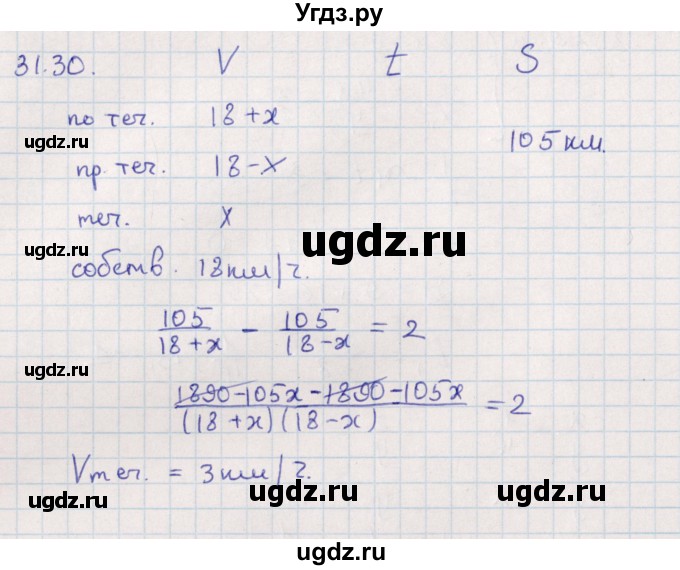 Угдз.ру
31.30. V t S
по теч. 18+x
105 км.
ugdz.ru ugdz.ru
пр. теч. 18-x
теч. x
ugdz.ru ugdz.ru ugdz.ru
собств. 18км/ч.
105/(18+x) - 105/(18-x) = 2
ugdz.ru ugdz.ru
(1890-105x-1890-105x)/((18+x)(18-x)) = 2
Vтеч. = 3км/ч.
ugdz.ru ugdz.ru ugdz.ru
ugdz.ru